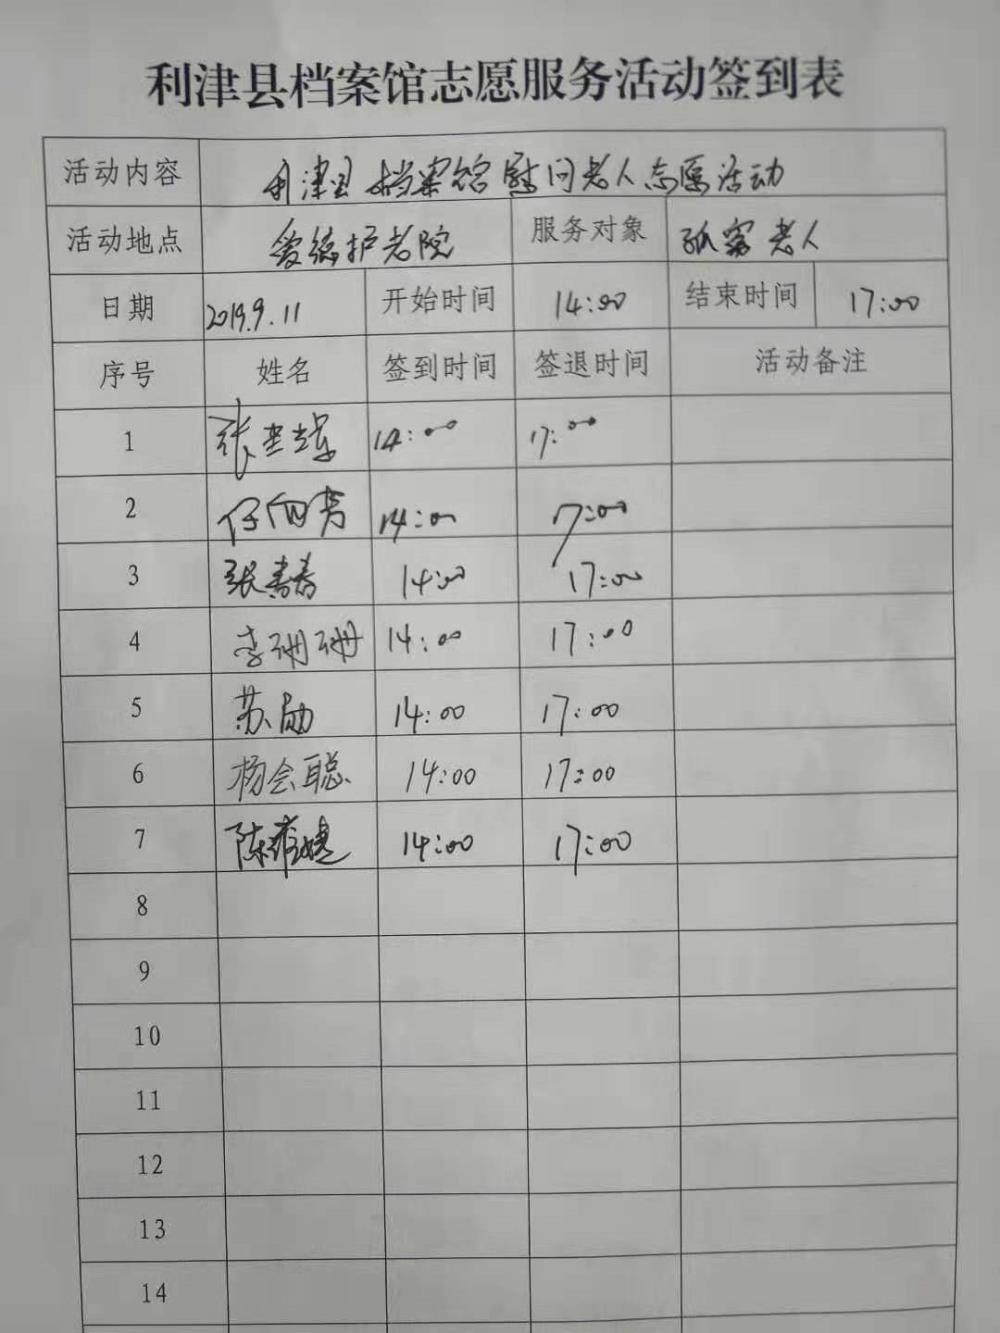 利津县档案馆志愿服务活动签到表
活动内容 利津县档案馆慰问老人志愿活动
活动地点 爱德护老院 服务对象 孤寡老人
日期 2019.9.11 开始时间 14:00 结束时间 17:00
序号 姓名 签到时间 签退时间 活动备注
1 张 14:00 17:00
2 14:00 17:00
3 张春春 14:00 17:00
4 李珊珊 14:00 17:00
5 苏勋 14:00 17:00
6 杨会聪 14:00 17:00
7 陈 14:00 17:00
8
9
10
11
12
13
14